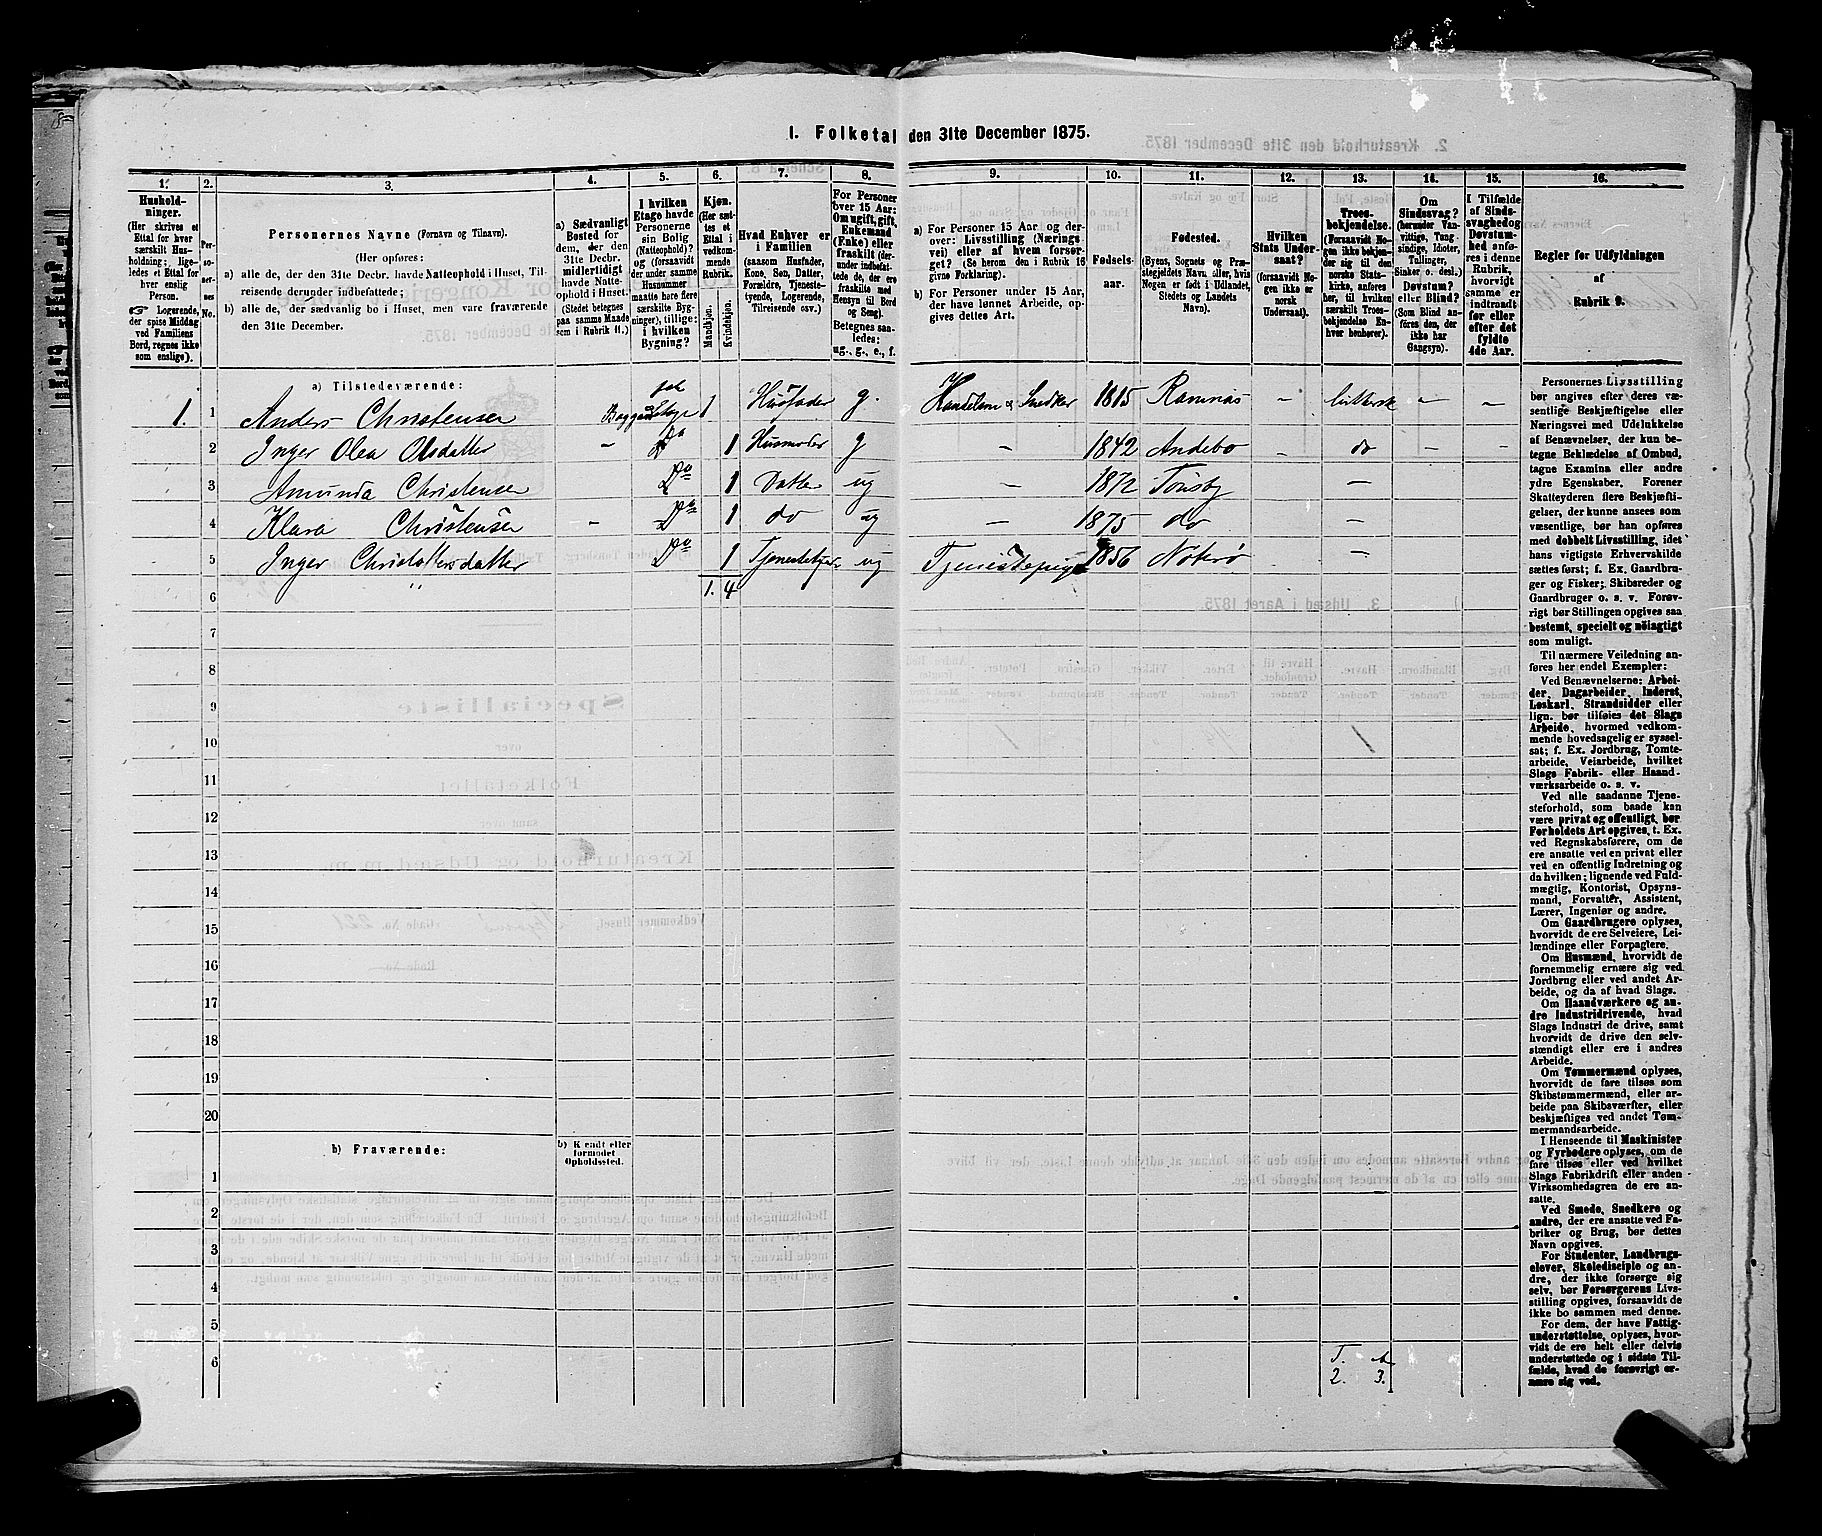 1. Folketal den 31te December 1875.
1.
Hushold-
ninger.
(Her skrives et
Ettal for hver
særskilt Hus-
holdning; lige-
ledes et Ettal for
hver enslig
Person.
☞ Logerende,
der spise Middag
ved Familiens
Bord, regnes ikke
som enslige).
2.
Per-
so-
ner-
nes
No.
3.
Personernes Navne (Fornavn og Tilnavn).
(Her opføres:
a) alle de, der den 31te Decbr. havde Natteophold i Huset, Til-
reisende derunder indbefattede;
b) alle de, der sædvanlig bo i Huset, men vare fraværende
den 31te December.
4.
a) Sædvanligt
Bosted for
dem, der den
31te Decbr.
midlertidigt
havde Natte-
ophold i Huset.
(Stedet betegnes
paa samme Maade
som i Rubrik 11.)
5.
I hvilken
Etage havde
Personerne
sin Bolig
(Natteophold)?
og (forsaavidt
der under samme
Husnummer
maatte høre flere
særskilte Byg-
ninger), tillige:
i hvilken
Bygning?
6.
Kjøn.
(Her sæt-
tes et
Ettal i
vedkom-
mende
Rubrik.
Mandkjøn.
Kvindekjøn.
7.
Hvad Enhver er
i Familien
(saasom Husfader,
Kone, Søn, Datter,
Forældre, Tjeneste-
tyende, Logerende,
Tilreisende osv.)
8.
For Personer
over 15 Aar:
Om ugift, gift,
Enkemand
(Enke) eller
fraskilt (der-
under indbefat-
tede de, der ere
fraskilte med
Hensyn til Bord
og Seng).
Betegnes saa-
ledes:
ug., g., e., f.
9.
a) For Personer 15 Aar og der-
over: Livsstilling (Nærings-
vei) eller af hvem forsør-
get? (Se herom den i Rubrik 16
givne Forklaring).
b) For Personer under 15 Aar,
der have lønnet Arbeide, op-
gives dettes Art.
10.
Fødsels-
aar.
11.
Fødested.
(Byens, Sognets og Præ-
stegjeldets Navn eller, hvis
Nogen er født i Udlandet,
Stedets og Landets
Navn).
12.
Hvilken
Stats Under-
saat?
(forsaavidt No-
gen ikke er
norsk
Undersaat).
13.
Troes-
bekjendelse.
(Forsaavidt No-
gen ikke bekjen-
der sig til den
norske Stats-
kirke, anføres
her, til hvilken
særskilt Troes-
bekjendelse En-
hver henhører).
14.
Om
Sindssvag?
(herunder Van-
vittige, Tung
sindige, Idioter,
Tullinger,
Sinker o. desl.)
Døvstum?
eller Blind?
(Som Blind an-
føres den, der
ikke har
Gangsyn).
15.
I Tilfælde
af Sinds-
svaghed og
Døvstum-
hed anfø-
res i denne
Rubrik,
hvorvidt
samme er
indtraadt
før eller
efter det
fyldte
4de Aar.
16.
Regler for Udfyldningen
af
Rubrik 9.
a) Tilstedeværende:
1. 1 Anders Christensen 1 Husfader g. Handelsm & Snedker 1815 Ramnæs – luthersk – –
2 Inger Olea Olsdatter – Do 1 Husmoder g – 1842 Andebo – do – –
3 Amunda Christensen Do 1 Datter ug – 1872 Tønsbg –
4 Klara Christensen – Do 1 do ug – 1875 do –
5 Inger Christoffersdatter Do 1 ug Tjenestepige 1856 Nøterø –
6 " 1. 4
7
8
9
10
11
12
13
14
15
16
17
18
19
20
b) Fraværende:
b) Kjendt eller
formodet
Opholdssted.
1
2
3
4
5
6
2. 3.
Personernes Livsstilling
bør angives efter deres væ-
sentlige Beskjæftigelse eller
Næringsvei med Udelukkelse
af Benævnelser, der kun be-
tegne Beklædelse af Ombud,
tagne Examina eller andre
ydre Egenskaber. Forener
Skatteyderen flere Beskjæfti-
gelser, der kunne ansees som
væsentlige, bør han opføres
med dobbelt Livsstilling, idet
hans vigtigste Erhvervskilde
sættes først; f. Ex. Gaardbru-
ger og Fisker; Skibsreder og
Gaardbruger o. s. v. Forøv-
rigt bør Stillingen opgives saa
bestemt, specielt og nøiagtigt
som muligt.
Til nærmere Veiledning an-
føres her endel Exempler:
Ved Benævnelserne: Arbei-
der, Dagarbeider, Inderst,
Løskarl, Strandsidder eller
lign. bør tilføies det Slags
Arbeide, hvormed vedkom-
mende hovedsagelig er syssel-
sat; f. Ex. Jordbrug, Tomte-
arbeide, Veiarbeide, hvilket
Slags Fabrik- eller Haand-
værksarbeide o. s. v.
Ved alle saadanne Tjene-
steforhold, som baade kan
være privat og offentligt, bør
Forholdets Art opgives, t. Ex.
ved Regnskabsførere, om de
ere ansatte ved en privat eller
ved en offentlig Indretning og
da hvilken; lignende ved Fuld-
mægtig, Kontorist, Opsyns-
mand, Forvalter, Assistent,
Lærer, Ingeniør og andre.
Om Gaardbrugere oplyses,
hvorvidt de ere Selveiere, Lei-
lændinge eller Forpagtere.
Om Husmænd, hvorvidt de
fornemmelig ernære sig ved
Jordbrug eller ved andet Ar-
beide, og da af hvad Slags.
Om Haandværkere og an-
dre Industridrivende, hvad
Slags Industri de drive, samt
hvorvidt de drive den selv-
stændigt eller ere i andres
Arbeide.
Om Tømmermænd oplyses,
hvorvidt de fare tilsøs som
Skibstømmermænd, eller ar-
beide paa Skibsværfter, eller
beskjæftiges ved andet Tøm-
mermandsarbeide.
I Henseende til Maskinister
og Fyrbødere oplyses, om de
fare tilsøs eller ved hvilket
Slags Fabrikdrift eller anden
Virksomhedsgren de ere an-
satte.
Ved Smede, Snedkere og
andre, der ere ansatte ved Fa-
briker og Brug, bør dettes
Navn opgives.
For Studenter, Landbrugs-
elever, Skoledisciple og an-
dre, der ikke forsørge sig
selv, bør Forsørgerens Livs-
stilling opgives, forsaavidt de
ikke bo sammen med denne.
For dem, der have Fattig-
understøttelse, oplyses, hvor-
vidt de ere helt eller delvis
understøttede og i sidste Til-
fælde, hvad de forøvrigt er-
nære sig ved.